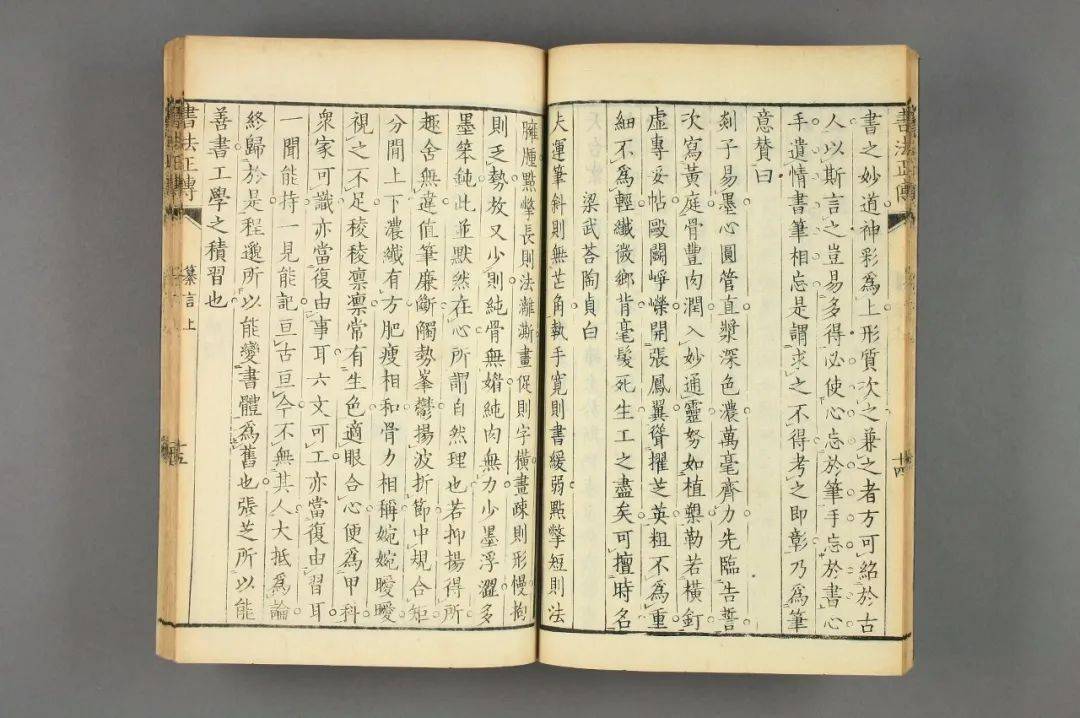 書法正傳
十四
書之妙道神彩爲上形質次之兼之者方可紹於古
人以斯言之豈易多得必使心忘於筆手忘於書心
手遺情書筆相忘是謂求之不得考之即彰乃爲筆
意贊曰
剡子易墨心圓管直漿深色濃萬毫齊力先臨告誓
次寫黃庭骨豐肉潤入妙通靈努如植槊勒若橫釘
虛專妥帖毆鬭崢嶸開張鳳翼聳擢芝英粗不爲重
細不爲輕纖微鄉背毫髮死生工之盡矣可擅時名
梁武荅陶貞白
夫運筆斜則無芒角執手寬則書緩弱點撆短則法
臃腫點撆長則法離澌畫促則字橫畫疎則形慢拘
則乏勢放又少則純骨無媚純肉無力少墨浮澀多
墨笨鈍此並默然在心所謂自然理也若抑揚得所
趣舍無違值筆廉斷觸勢峯鬱揚波折節中規合矩
分間上下濃纖有方肥瘦相和骨力相稱婉婉曖曖
視之不足稜稜凛凛常有生色適眼合心便爲甲科
衆家可識亦當復由事耳六文可工亦當復由習耳
一聞能持一見能記亘古亘今不無其人大抵爲論
終歸於是程邈所以能變書體爲舊也張芝所以能
善書工學之積習也
書法正傳
纂言上
十五